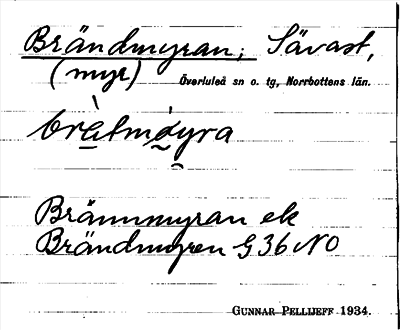 Brändmyran; Sävast,
(myr) Överluleå sn o. tg, Norrbottens län.
Brännmyran ek
Brändmyren G 36 NO
GUNNAR PELLIJEFF 1934.